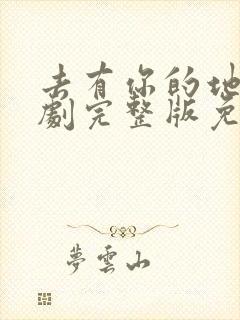 去有你的地
劇完整版免
夢雲山